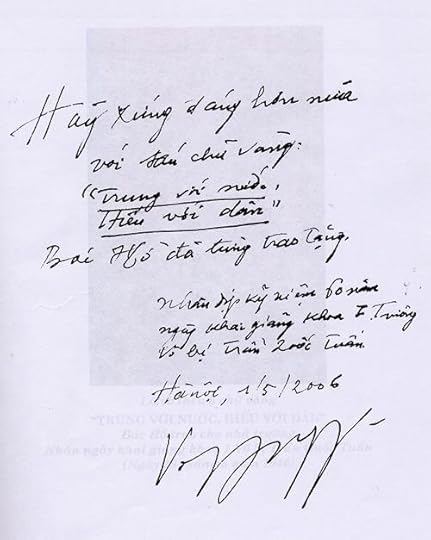 Hãy xứng đáng hơn nữa
với tám chữ vàng:
"Trung với nước,
Hiếu với dân"
Bác Hồ đã từng trao tặng.
Nhân dịp kỷ niệm 60 năm
ngày khai giảng khóa I. Trường
Võ bị Trần Quốc Tuấn
Hà Nội, 1/5/2006
"TRUNG VỚI NƯỚC, HIẾU VỚI DÂN"